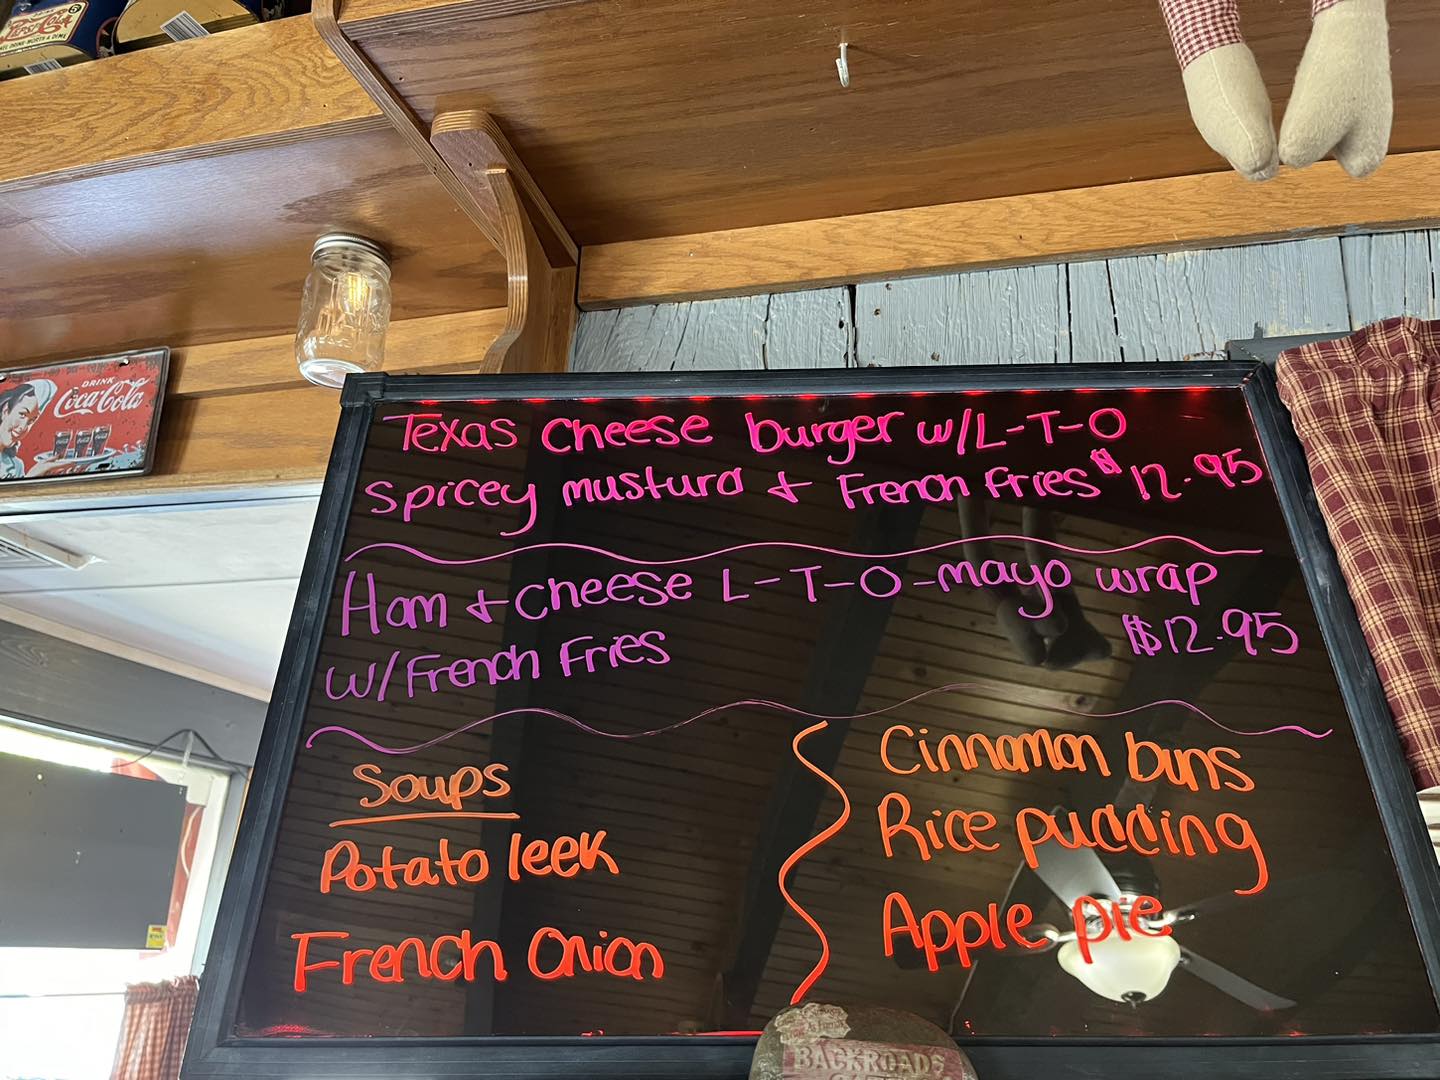 PEPSI-COLA
DRINK
Coca-Cola
Texas Cheese burger w/L-T-O
Spicey mustard + French Fries $12.95
Ham + cheese L-T-O-mayo wrap
w/French Fries $12.95
Soups
Potato leek
French Onion
Cinnamon buns
Rice pudding
Apple pie
BACKROADS